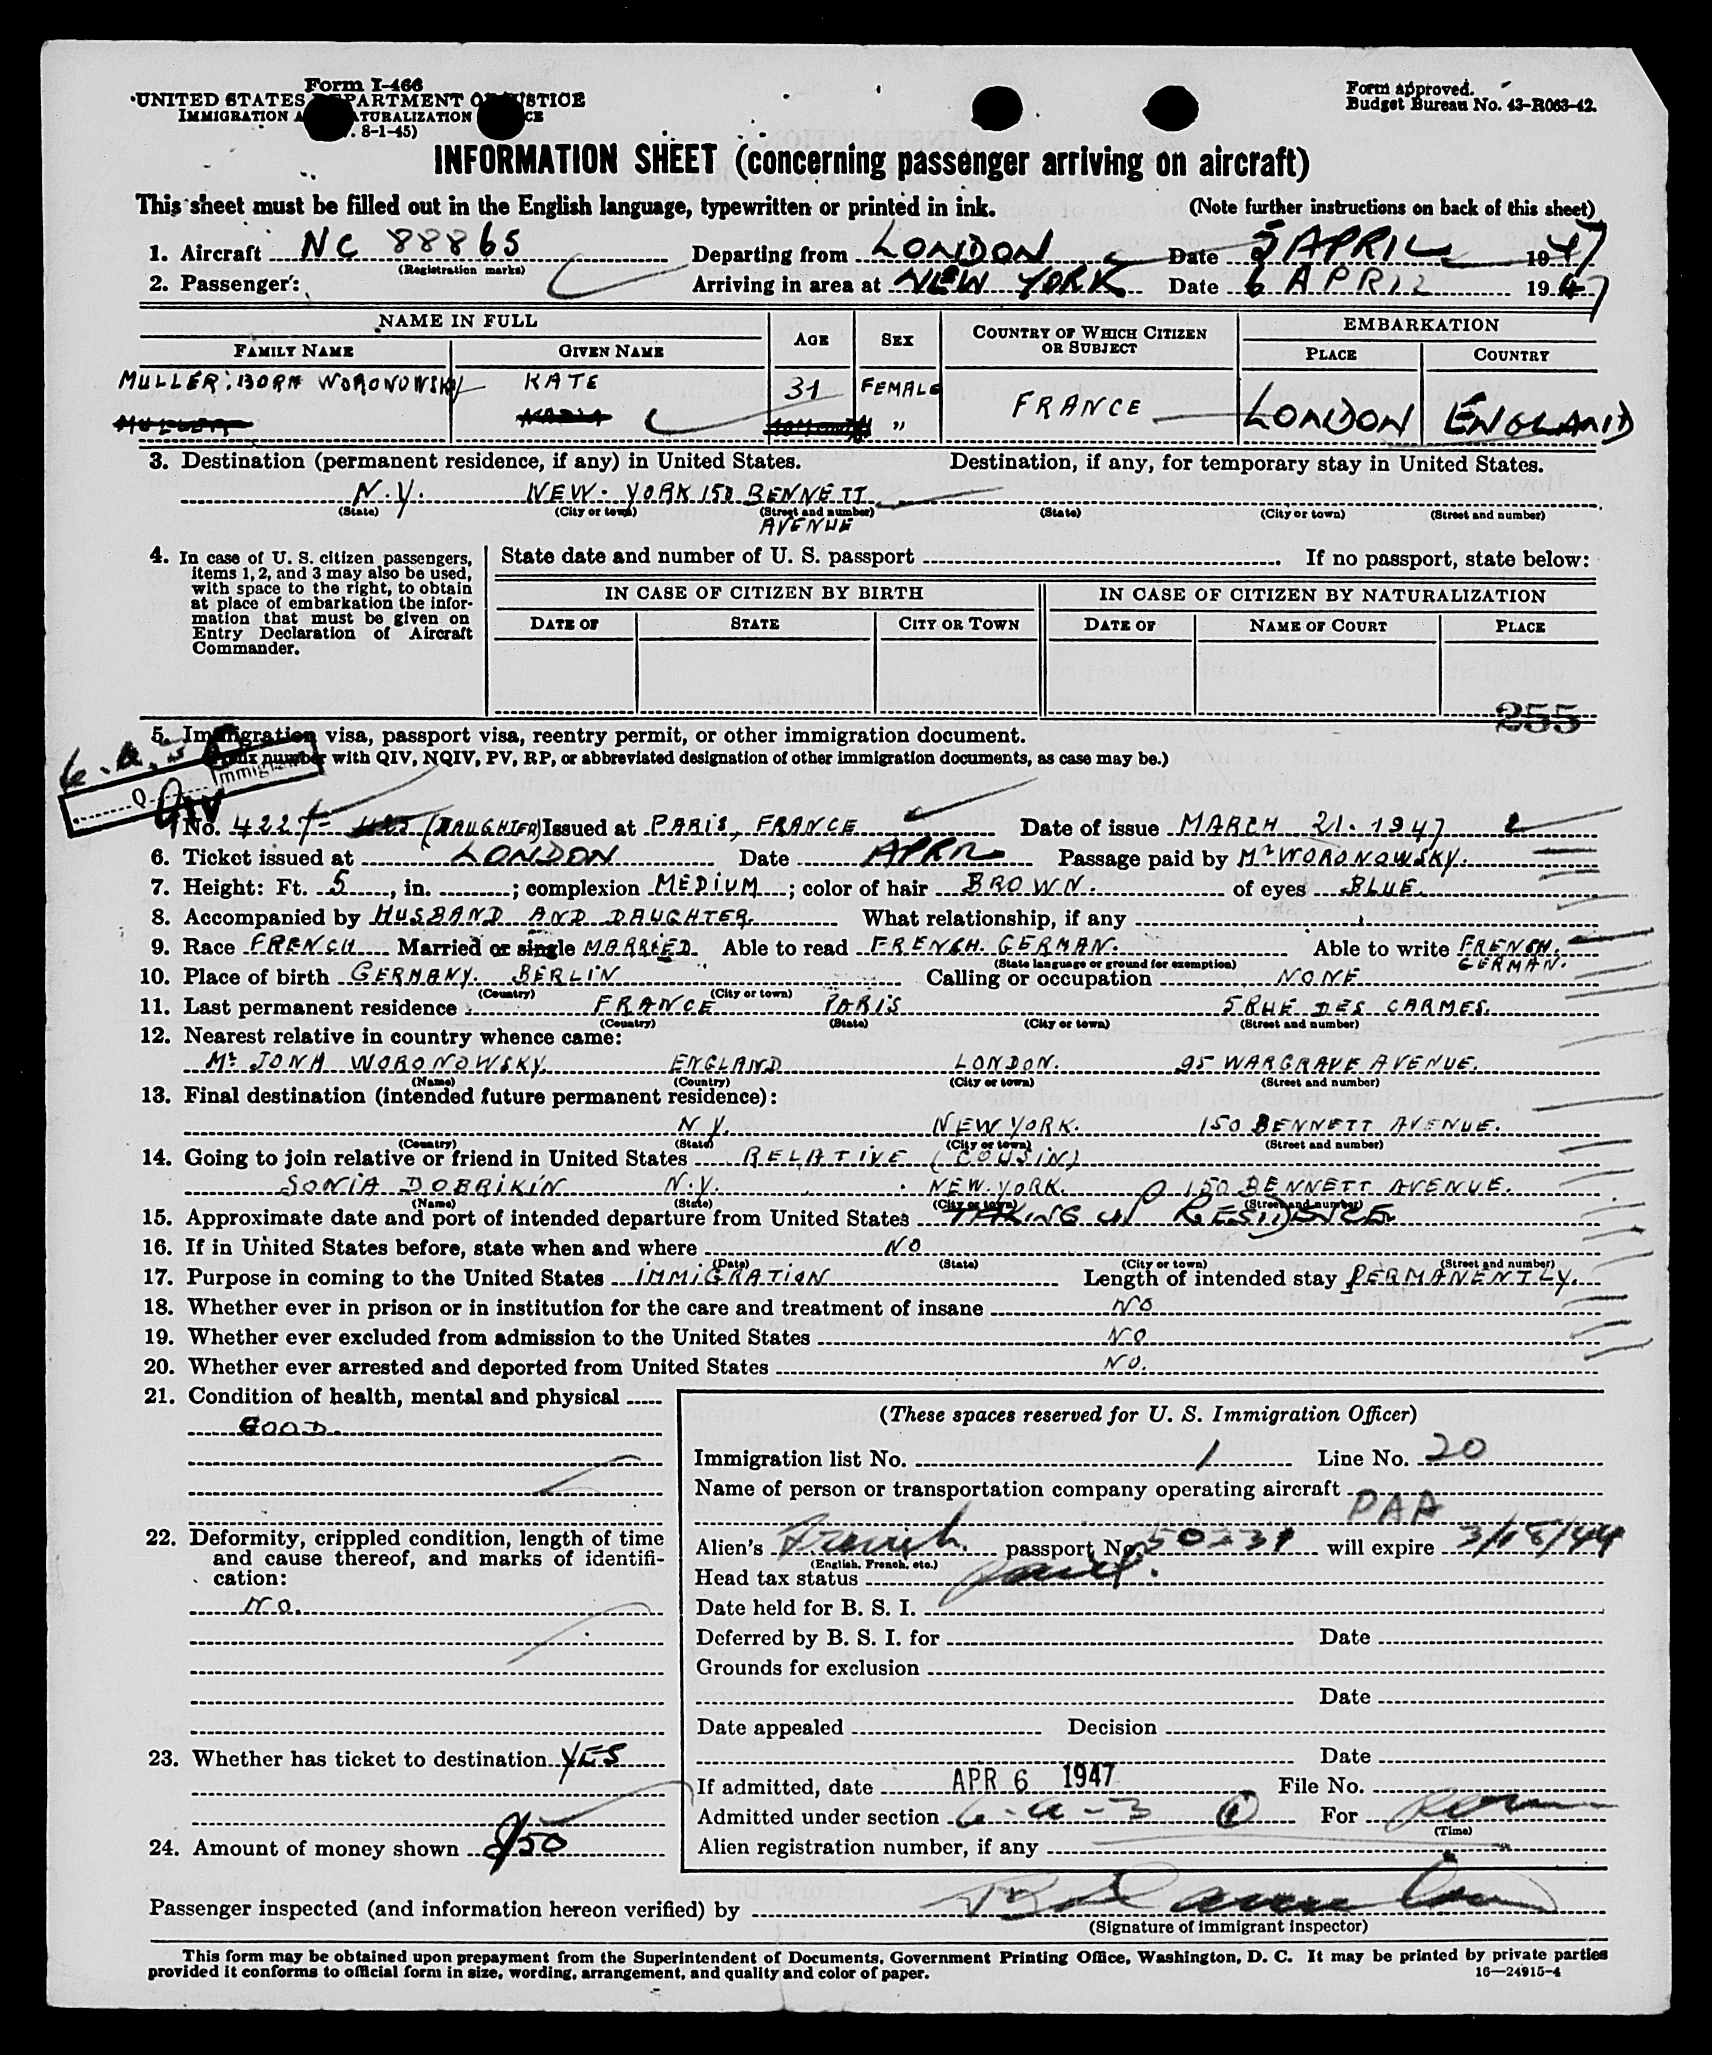 Form I-466
UNITED STATES DEPARTMENT OF JUSTICE
IMMIGRATION A TURALIZATION CE
8-1-45)
Form approved.
Budget Bureau No. 43-R063-42.
INFORMATION SHEET (concerning passenger arriving on aircraft)
This sheet must be filled out in the English language, typewritten or printed in ink. (Note further instructions on back of this sheet)
1. Aircraft NC 88865 Departing from LONDON Date 5 APRIL 1947
(Registration marks)
2. Passenger: Arriving in area at NEW YORK Date 6 APRIL 1947
NAME IN FULL AGE SEX COUNTRY OF WHICH CITIZEN OR SUBJECT EMBARKATION
FAMILY NAME GIVEN NAME PLACE COUNTRY
MULLER: BORN WORONOWSKY KATE 31 FEMALE FRANCE LONDON ENGLAND
MULLER "
3. Destination (permanent residence, if any) in United States. Destination, if any, for temporary stay in United States.
N.Y. NEW-YORK 150 BENNETT
(State) (City or town) (Street and number) (State) (City or town) (Street and number)
AVENUE
4. In case of U. S. citizen passengers, items 1, 2, and 3 may also be used, with space to the right, to obtain at place of embarkation the information that must be given on Entry Declaration of Aircraft Commander.
State date and number of U. S. passport If no passport, state below:
IN CASE OF CITIZEN BY BIRTH IN CASE OF CITIZEN BY NATURALIZATION
DATE OF STATE CITY OR TOWN DATE OF NAME OF COURT PLACE
255
5. Immigration visa, passport visa, reentry permit, or other immigration document.
number with QIV, NQIV, PV, RP, or abbreviated designation of other immigration documents, as case may be.)
Q Immigrant
QIV
No. 4227 (DAUGHTER) Issued at PARIS, FRANCE Date of issue MARCH 21. 1947
6. Ticket issued at LONDON Date APRIL Passage paid by Mr WORONOWSKY.
7. Height: Ft. 5, in. ; complexion MEDIUM; color of hair BROWN. of eyes BLUE.
8. Accompanied by HUSBAND AND DAUGHTER. What relationship, if any
9. Race FRENCH Married or single MARRIED. Able to read FRENCH. GERMAN. Able to write FRENCH.
(State language or ground for exemption) GERMAN.
10. Place of birth GERMANY. BERLIN Calling or occupation NONE
(Country) (City or town)
11. Last permanent residence FRANCE PARIS 5 RUE DES CARMES.
(Country) (State) (City or town) (Street and number)
12. Nearest relative in country whence came:
Mr JONA WORONOWSKY ENGLAND LONDON. 95 WARGRAVE AVENUE.
(Name) (Country) (City or town) (Street and number)
13. Final destination (intended future permanent residence):
N.Y. NEW YORK. 150 BENNETT AVENUE.
(Country) (State) (City or town) (Street and number)
14. Going to join relative or friend in United States RELATIVE (COUSIN)
SONIA DOBRIKIN N.Y. NEW.YORK. 150 BENNETT AVENUE.
(Name) (State) (City or town) (Street and number)
15. Approximate date and port of intended departure from United States TAKING UP RESIDENCE.
16. If in United States before, state when and where NO
(Date) (State) (City or town) (Street and number)
17. Purpose in coming to the United States IMMIGRATION Length of intended stay PERMANENTLY.
18. Whether ever in prison or in institution for the care and treatment of insane NO
19. Whether ever excluded from admission to the United States NO
20. Whether ever arrested and deported from United States NO.
21. Condition of health, mental and physical
GOOD.
22. Deformity, crippled condition, length of time and cause thereof, and marks of identification:
NO.
23. Whether has ticket to destination YES
24. Amount of money shown $50
(These spaces reserved for U. S. Immigration Officer)
Immigration list No. 1 Line No. 20
Name of person or transportation company operating aircraft
PAA
Alien's French passport No. 50331 will expire 3/18/44
(English, French, etc.)
Head tax status paid.
Date held for B. S. I.
Deferred by B. S. I. for Date
Grounds for exclusion
Date
Date appealed Decision
Date
If admitted, date APR 6 1947 File No.
Admitted under section 6-a-3 For Perm
(Time)
Alien registration number, if any
Passenger inspected (and information hereon verified) by
(Signature of immigrant inspector)
This form may be obtained upon prepayment from the Superintendent of Documents, Government Printing Office, Washington, D. C. It may be printed by private parties
provided it conforms to official form in size, wording, arrangement, and quality and color of paper. 16—24915-4